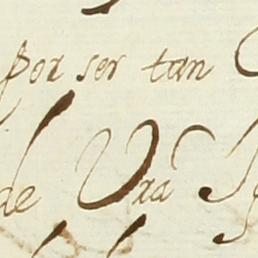 por ser tan
de Vrã